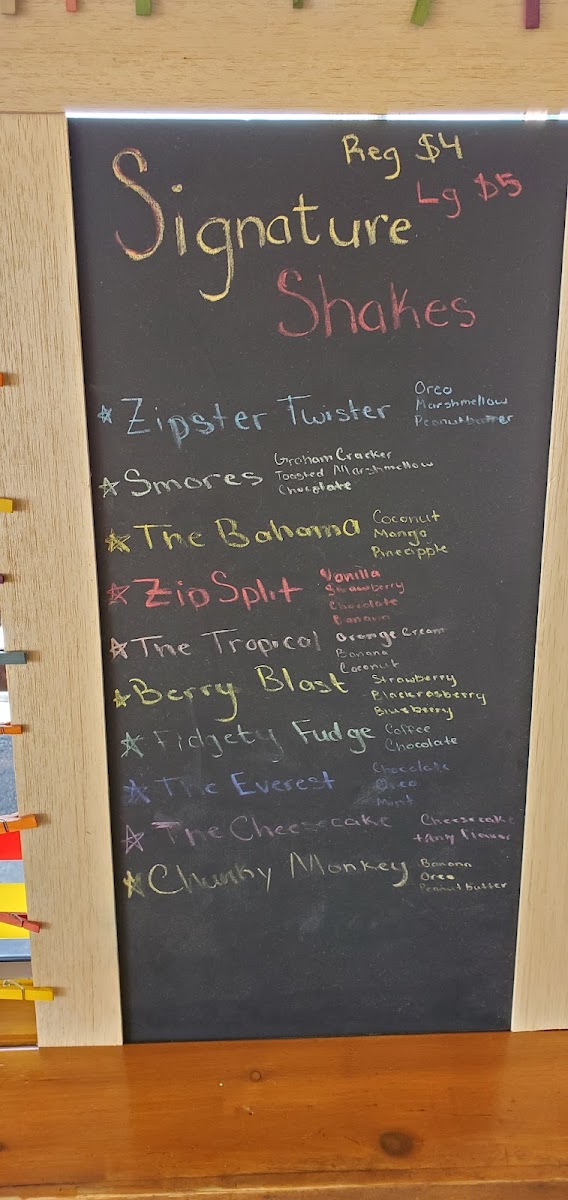 Reg $4
Lg $5
Signature
Shakes
Zipster Twister
Oreo
Marshmellow
Peanutbutter
Smores
Graham Cracker
Toasted Marshmellow
Chocolate
The Bahama
Coconut
Mango
Pineapple
Zip Split
Vanilla
Strawberry
Chocolate
Banana
The Tropical
Orange Cream
Banana
Coconut
Berry Blast
Strawberry
Blackrasberry
Blueberry
Fidgety Fudge
Coffee
Chocolate
The Everest
Chocolate
Oreo
Mint
The Cheesecake
Cheesecake
+ Any flavor
Chunky Monkey
Banana
Oreo
Peanut butter